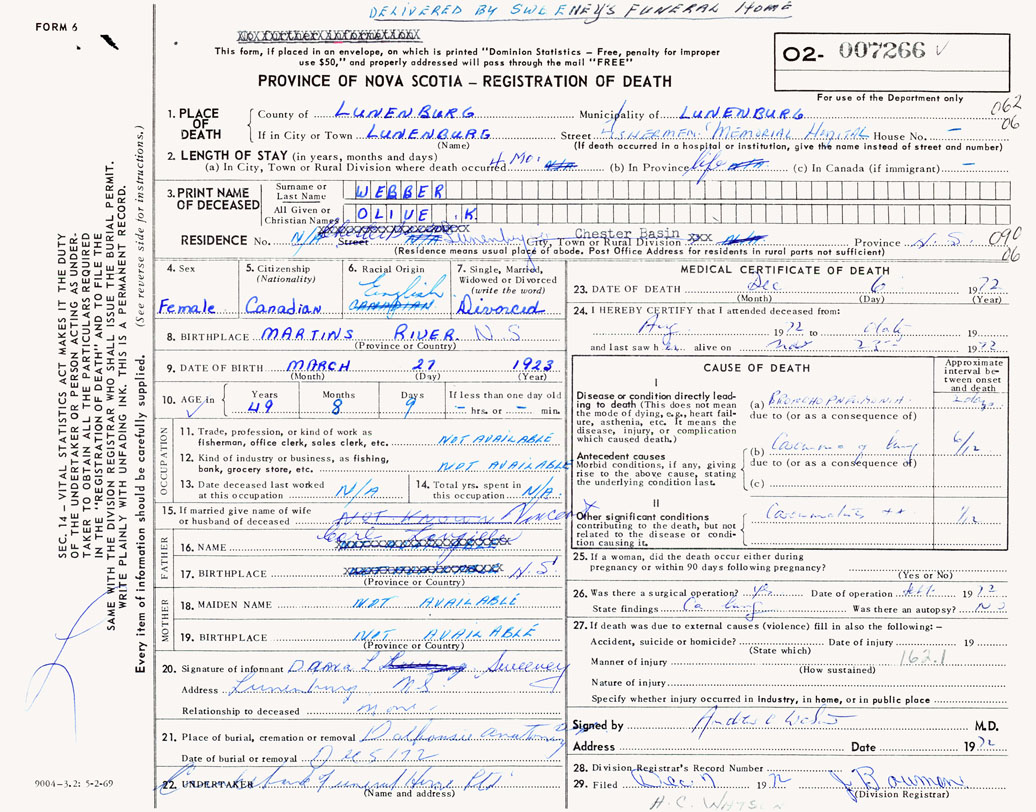 DELIVERED BY SWEENEY'S FUNERAL HOME
FORM 6
No further information
This form, if placed in an envelope, on which is printed "Dominion Statistics – Free, penalty for improper
use $50," and properly addressed will pass through the mail "FREE"
PROVINCE OF NOVA SCOTIA – REGISTRATION OF DEATH
O2- 007266
For use of the Department only
062
06
1. PLACE OF DEATH
County of LUNENBURG Municipality of LUNENBURG
If in City or Town LUNENBURG Street FISHERMEN'S MEMORIAL HOSPITAL House No. –
(Name) (If death occurred in a hospital or institution, give the name instead of street and number)
2. LENGTH OF STAY (in years, months and days)
(a) In City, Town or Rural Division where death occurred 4 Mo. N/A (b) In Province life N/A (c) In Canada (if immigrant) –
3. PRINT NAME OF DECEASED
Surname or Last Name WEBBER
All Given or Christian Names OLIVE K
RESIDENCE No. N/A Street N/A Lunenburg City, Town or Rural Division Chester Basin N/A Province N.S. 090
06
(Residence means usual place of abode. Post Office Address for residents in rural parts not sufficient)
4. Sex Female
5. Citizenship (Nationality) Canadian
6. Racial Origin English CANADIAN
7. Single, Married, Widowed or Divorced (write the word) Divorced
8. BIRTHPLACE MARTINS RIVER, N.S
(Province or Country)
9. DATE OF BIRTH MARCH 27 1923
(Month) (Day) (Year)
10. AGE in Years 49 Months 8 Days 9 If less than one day old – hrs. or – min.
OCCUPATION
11. Trade, profession, or kind of work as fisherman, office clerk, sales clerk, etc. NOT AVAILABLE
12. Kind of industry or business, as fishing, bank, grocery store, etc. NOT AVAILABLE
13. Date deceased last worked at this occupation N/A
14. Total yrs. spent in this occupation N/A
15. If married give name of wife or husband of deceased NOT KNOWN Vincent
FATHER
16. NAME Carl Langille
17. BIRTHPLACE N.S.
(Province or Country)
MOTHER
18. MAIDEN NAME NOT AVAILABLE
19. BIRTHPLACE NOT AVAILABLE
(Province or Country)
20. Signature of informant L Sweeney
Address Lunenburg N.S.
Relationship to deceased none
21. Place of burial, cremation or removal Dalhousie anatomy
Date of burial or removal Dec 5/72
22. UNDERTAKER Funeral Home Ltd
(Name and address)
MEDICAL CERTIFICATE OF DEATH
23. DATE OF DEATH Dec 6 1972
(Month) (Day) (Year)
24. I HEREBY CERTIFY that I attended deceased from:
Aug 1972 to date 19
and last saw her alive on Nov 1972
CAUSE OF DEATH
Approximate interval between onset and death
I
Disease or condition directly leading to death (This does not mean the mode of dying, e.g., heart failure, asthenia, etc. It means the disease, injury, or complication which caused death.)
(a) BRONCHOPNEUMONIA 2 days
due to (or as a consequence of)
Antecedent causes
Morbid conditions, if any, giving rise to the above cause, stating the underlying condition last.
(b) Carcinoma of lung 6/12
due to (or as a consequence of)
(c)
II
Other significant conditions contributing to the death, but not related to the disease or condition causing it.
Carcinomatosis ++ 1/12
25. If a woman, did the death occur either during pregnancy or within 90 days following pregnancy?
(Yes or No)
26. Was there a surgical operation? yes Date of operation Sept. 1972
State findings Ca lung Was there an autopsy? No
27. If death was due to external causes (violence) fill in also the following: –
Accident, suicide or homicide? Date of injury 19
(State which)
Manner of injury 162.1
(How sustained)
Nature of injury
Specify whether injury occurred in industry, in home, or in public place
Signed by M.D.
Address Date 1972
28. Division Registrar's Record Number
29. Filed Dec. 7 1972 J Bowman
(Division Registrar)
H.C. WATSON
SEC. 14 – VITAL STATISTICS ACT MAKES IT THE DUTY
OF THE UNDERTAKER OR PERSON ACTING AS UNDERTAKER TO OBTAIN ALL THE PARTICULARS REQUIRED
IN THE "REGISTRATION OF DEATH" AND TO FILE THE
SAME WITH THE DIVISION REGISTRAR WHO SHALL ISSUE THE BURIAL PERMIT.
WRITE PLAINLY WITH UNFADING INK. THIS IS A PERMANENT RECORD.
Every item of information should be carefully supplied. (See reverse side for instructions.)
9004-3.2: 5-2-69